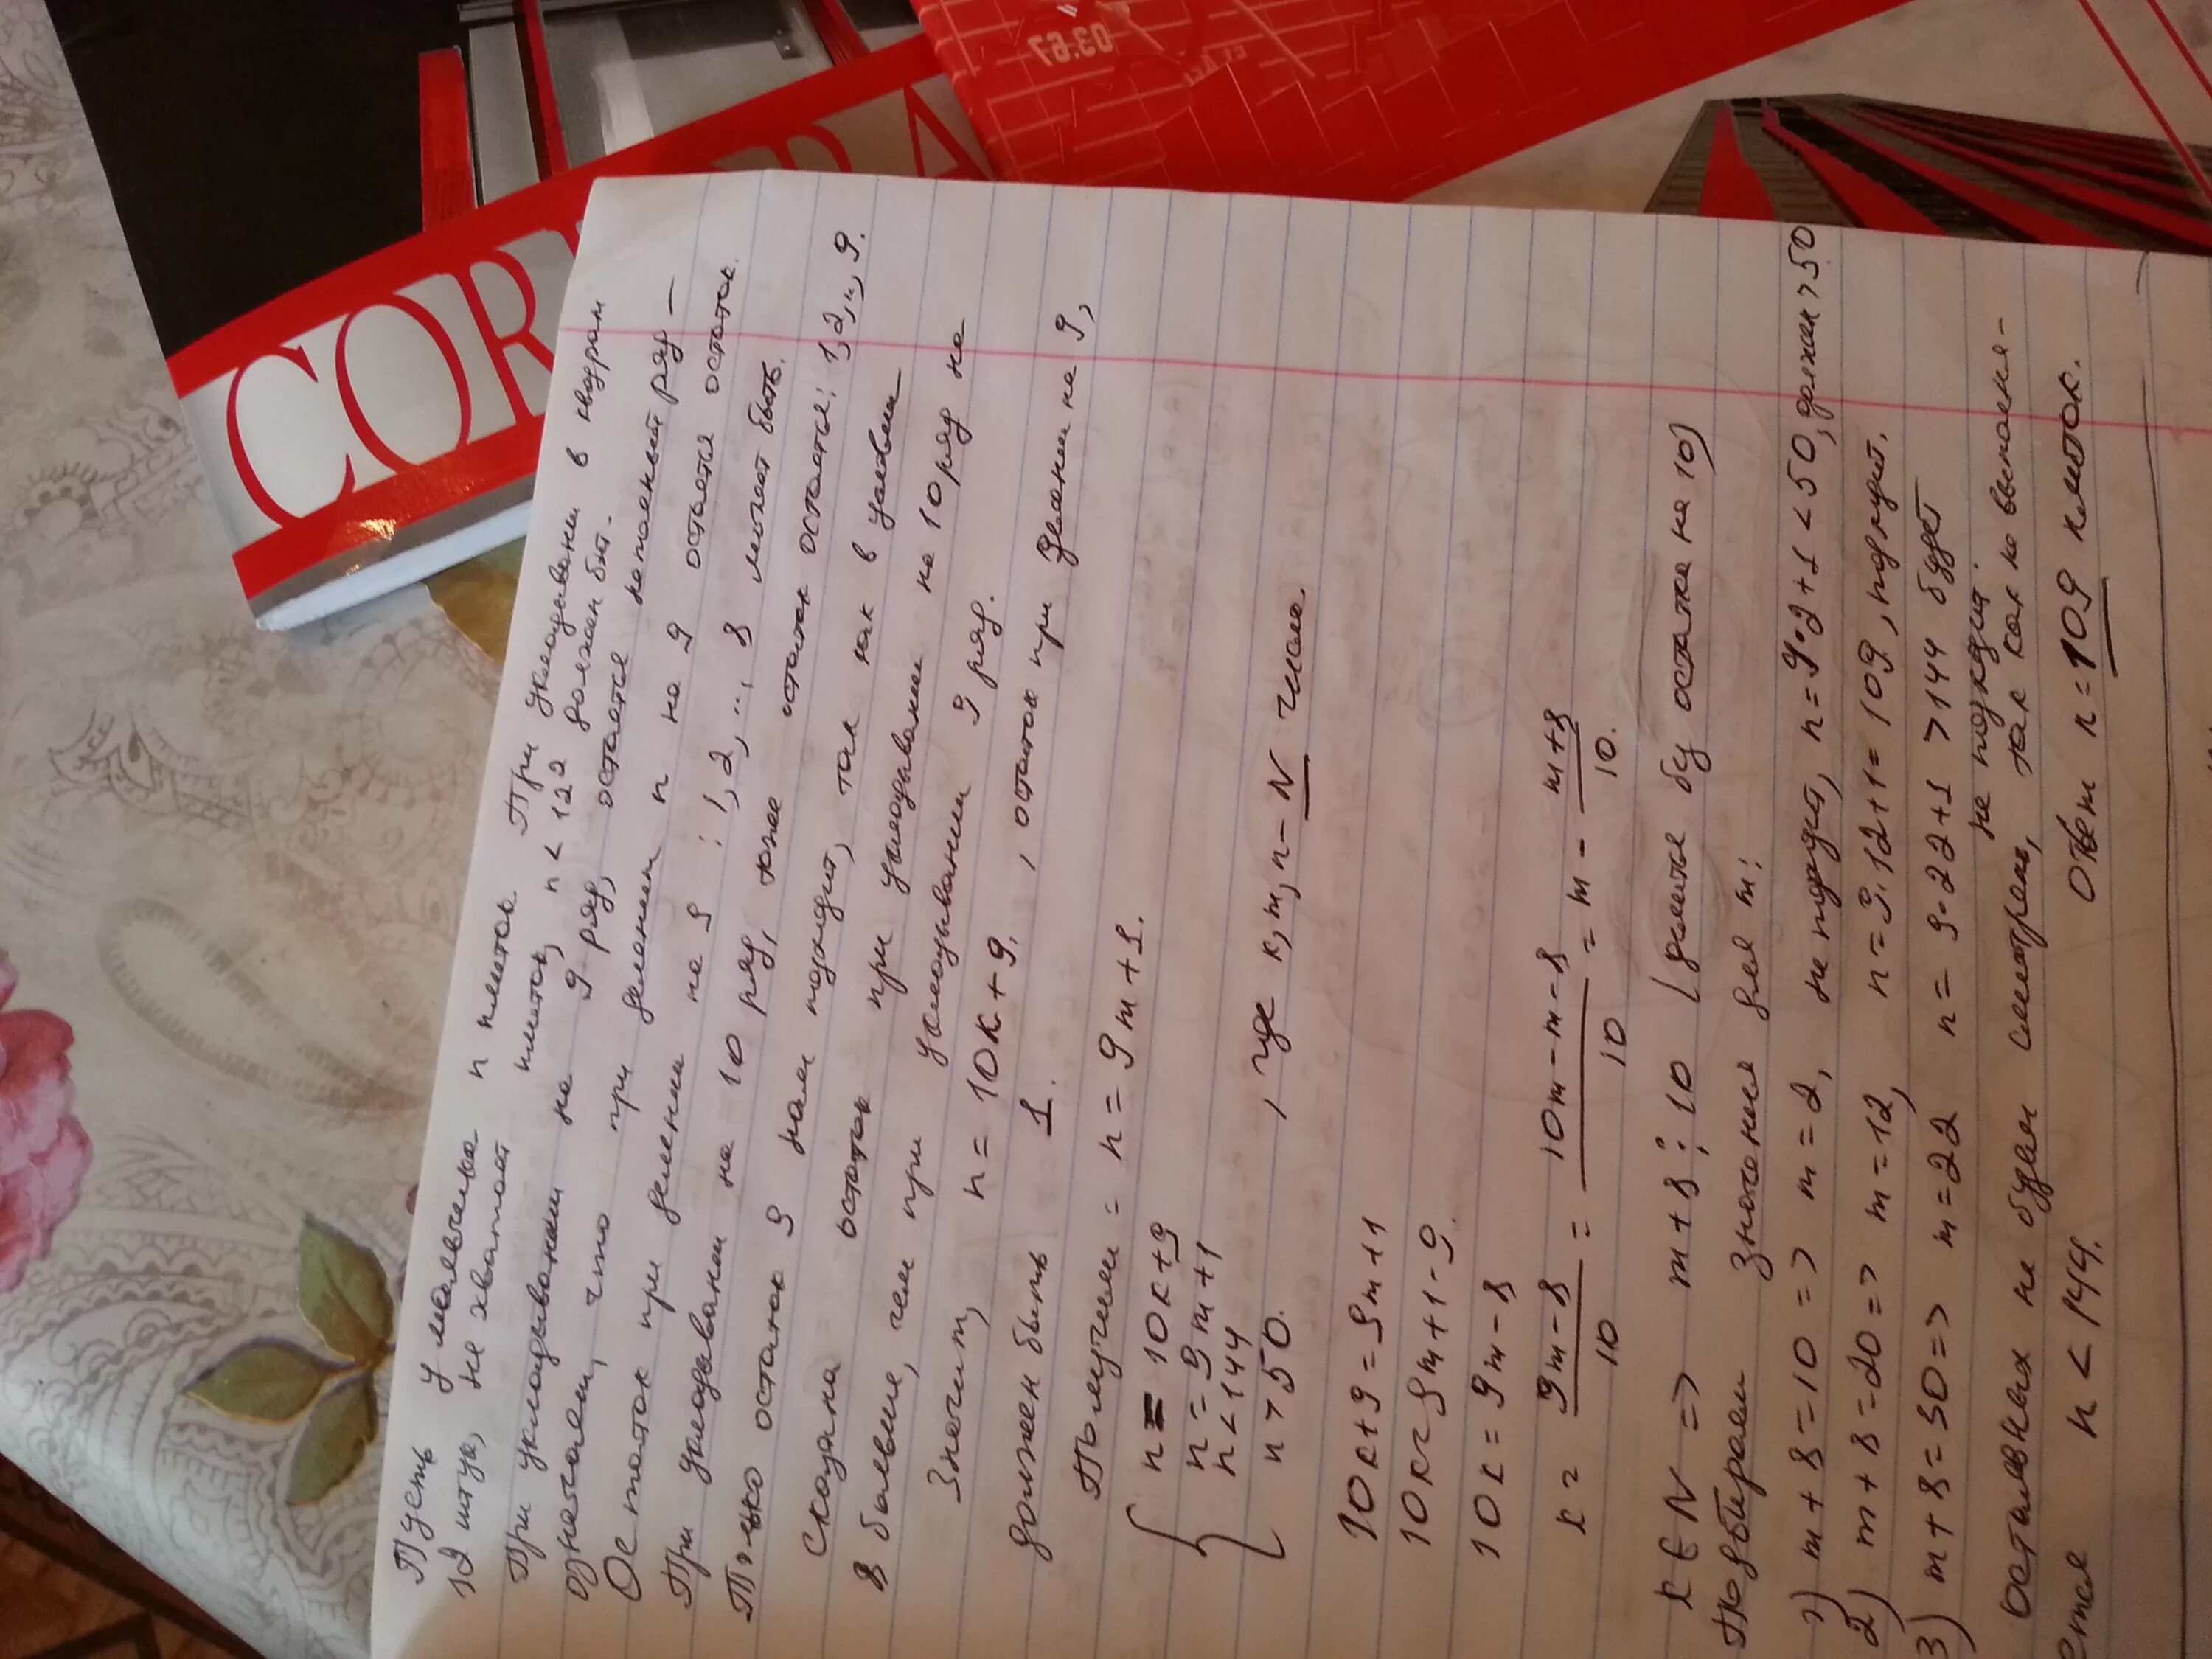 COR
RA
03:67
Пусть у мальчика n плиток. При укладывани в квадрат
12 штук, не хватает плиток, n < 122 должен быт.
При укладывании на 9 ряд, остается неполный ряд –
означает, что при делении n на 9 остаётся остаток.
Остаток при делении на 9 : 1, 2, ..., 8 может быть.
При укладывании на 10 ряд, тоже остаток остаётся: 1, 2, .., 9.
Только остаток 9 нам подходит, так как в условии
сказана остаток при укладывании на 10 ряд на
8 больше, чем при укладывании 9 ряд.
Значит, n = 10к + 9. , остаток при делении на 9,
должен быть 1.
Получили = n = 9m + 1.
n = 10к + 9
n = 9m + 1
n < 144
n > 50. , где к, m, n – N числа.
10к + 9 = 9m + 1
10к = 9m + 1 - 9.
10к = 9m - 8
к = 9m - 8 / 10 = 10m - m - 8 / 10 = m - m + 8 / 10.
к ∈ N => m + 8 ⋮ 10 (делится бу остатка на 10)
Подбираем значения для m:
1) m + 8 = 10 => m = 2, не подходит, n = 9·2 + 1 < 50, должен > 50
2) m + 8 = 20 => m = 12, n = 9·12 + 1 = 109, подходит.
3) m + 8 = 30 => m = 22 n = 9·22 + 1 > 144 будет
не подходит.
Остальных не будем смотреть, так как не выполня-
ется n < 144.
Ответ n = 109 плиток.